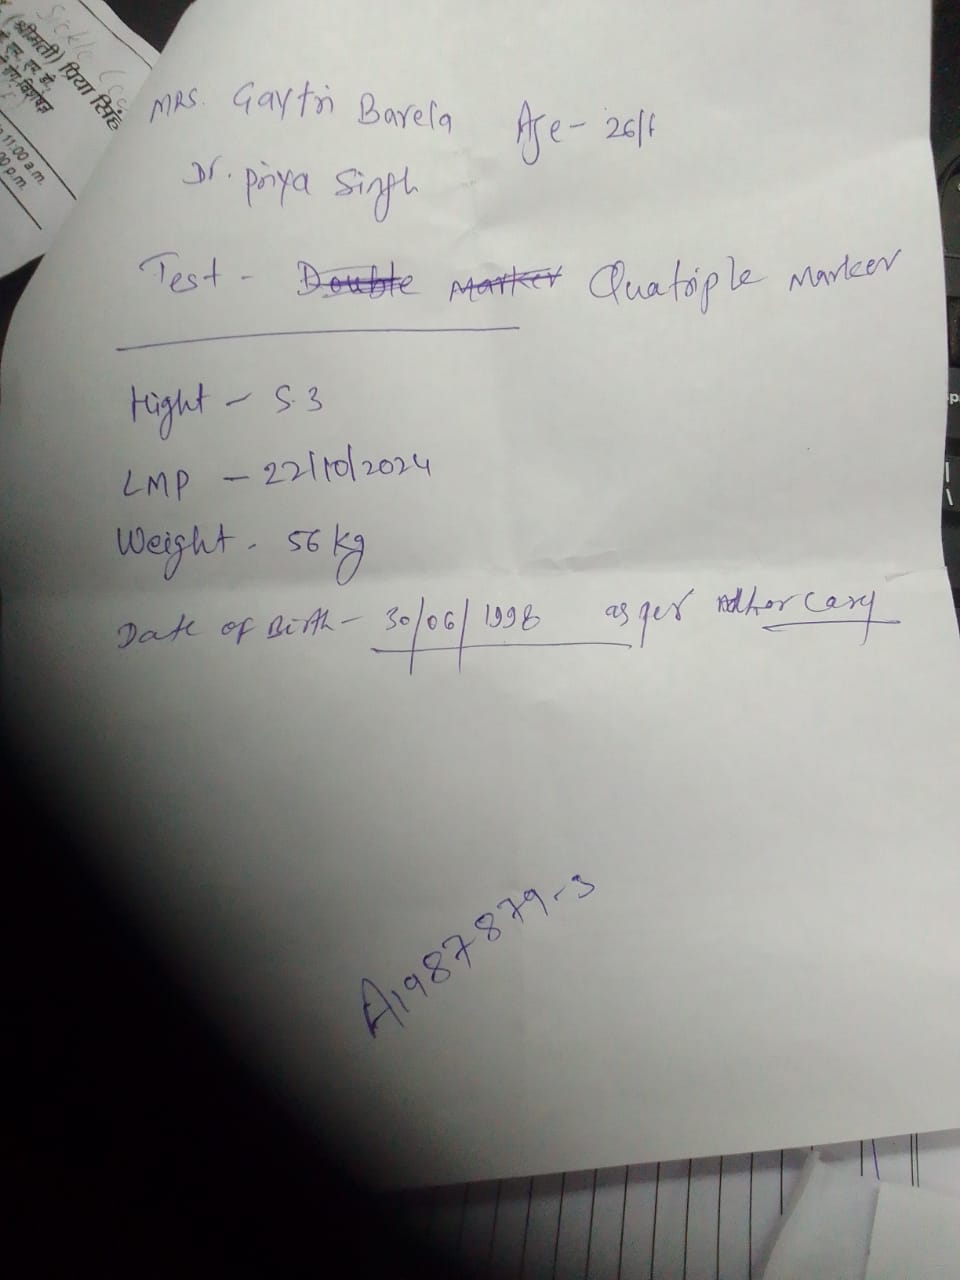 Sickle
(श्रीमती) प्रिया सिंह
11:00 a.m.
00 p.m.
MRS. Gaytri Barela Age - 26/f
Dr. Priya Singh
Test - Double Marker Quatriple Marker
Hight - 5.3
LMP - 22/10/2024
Weight - 56 kg
Date of Birth - 30/06/1998 as per Adhar card
A1987879-3